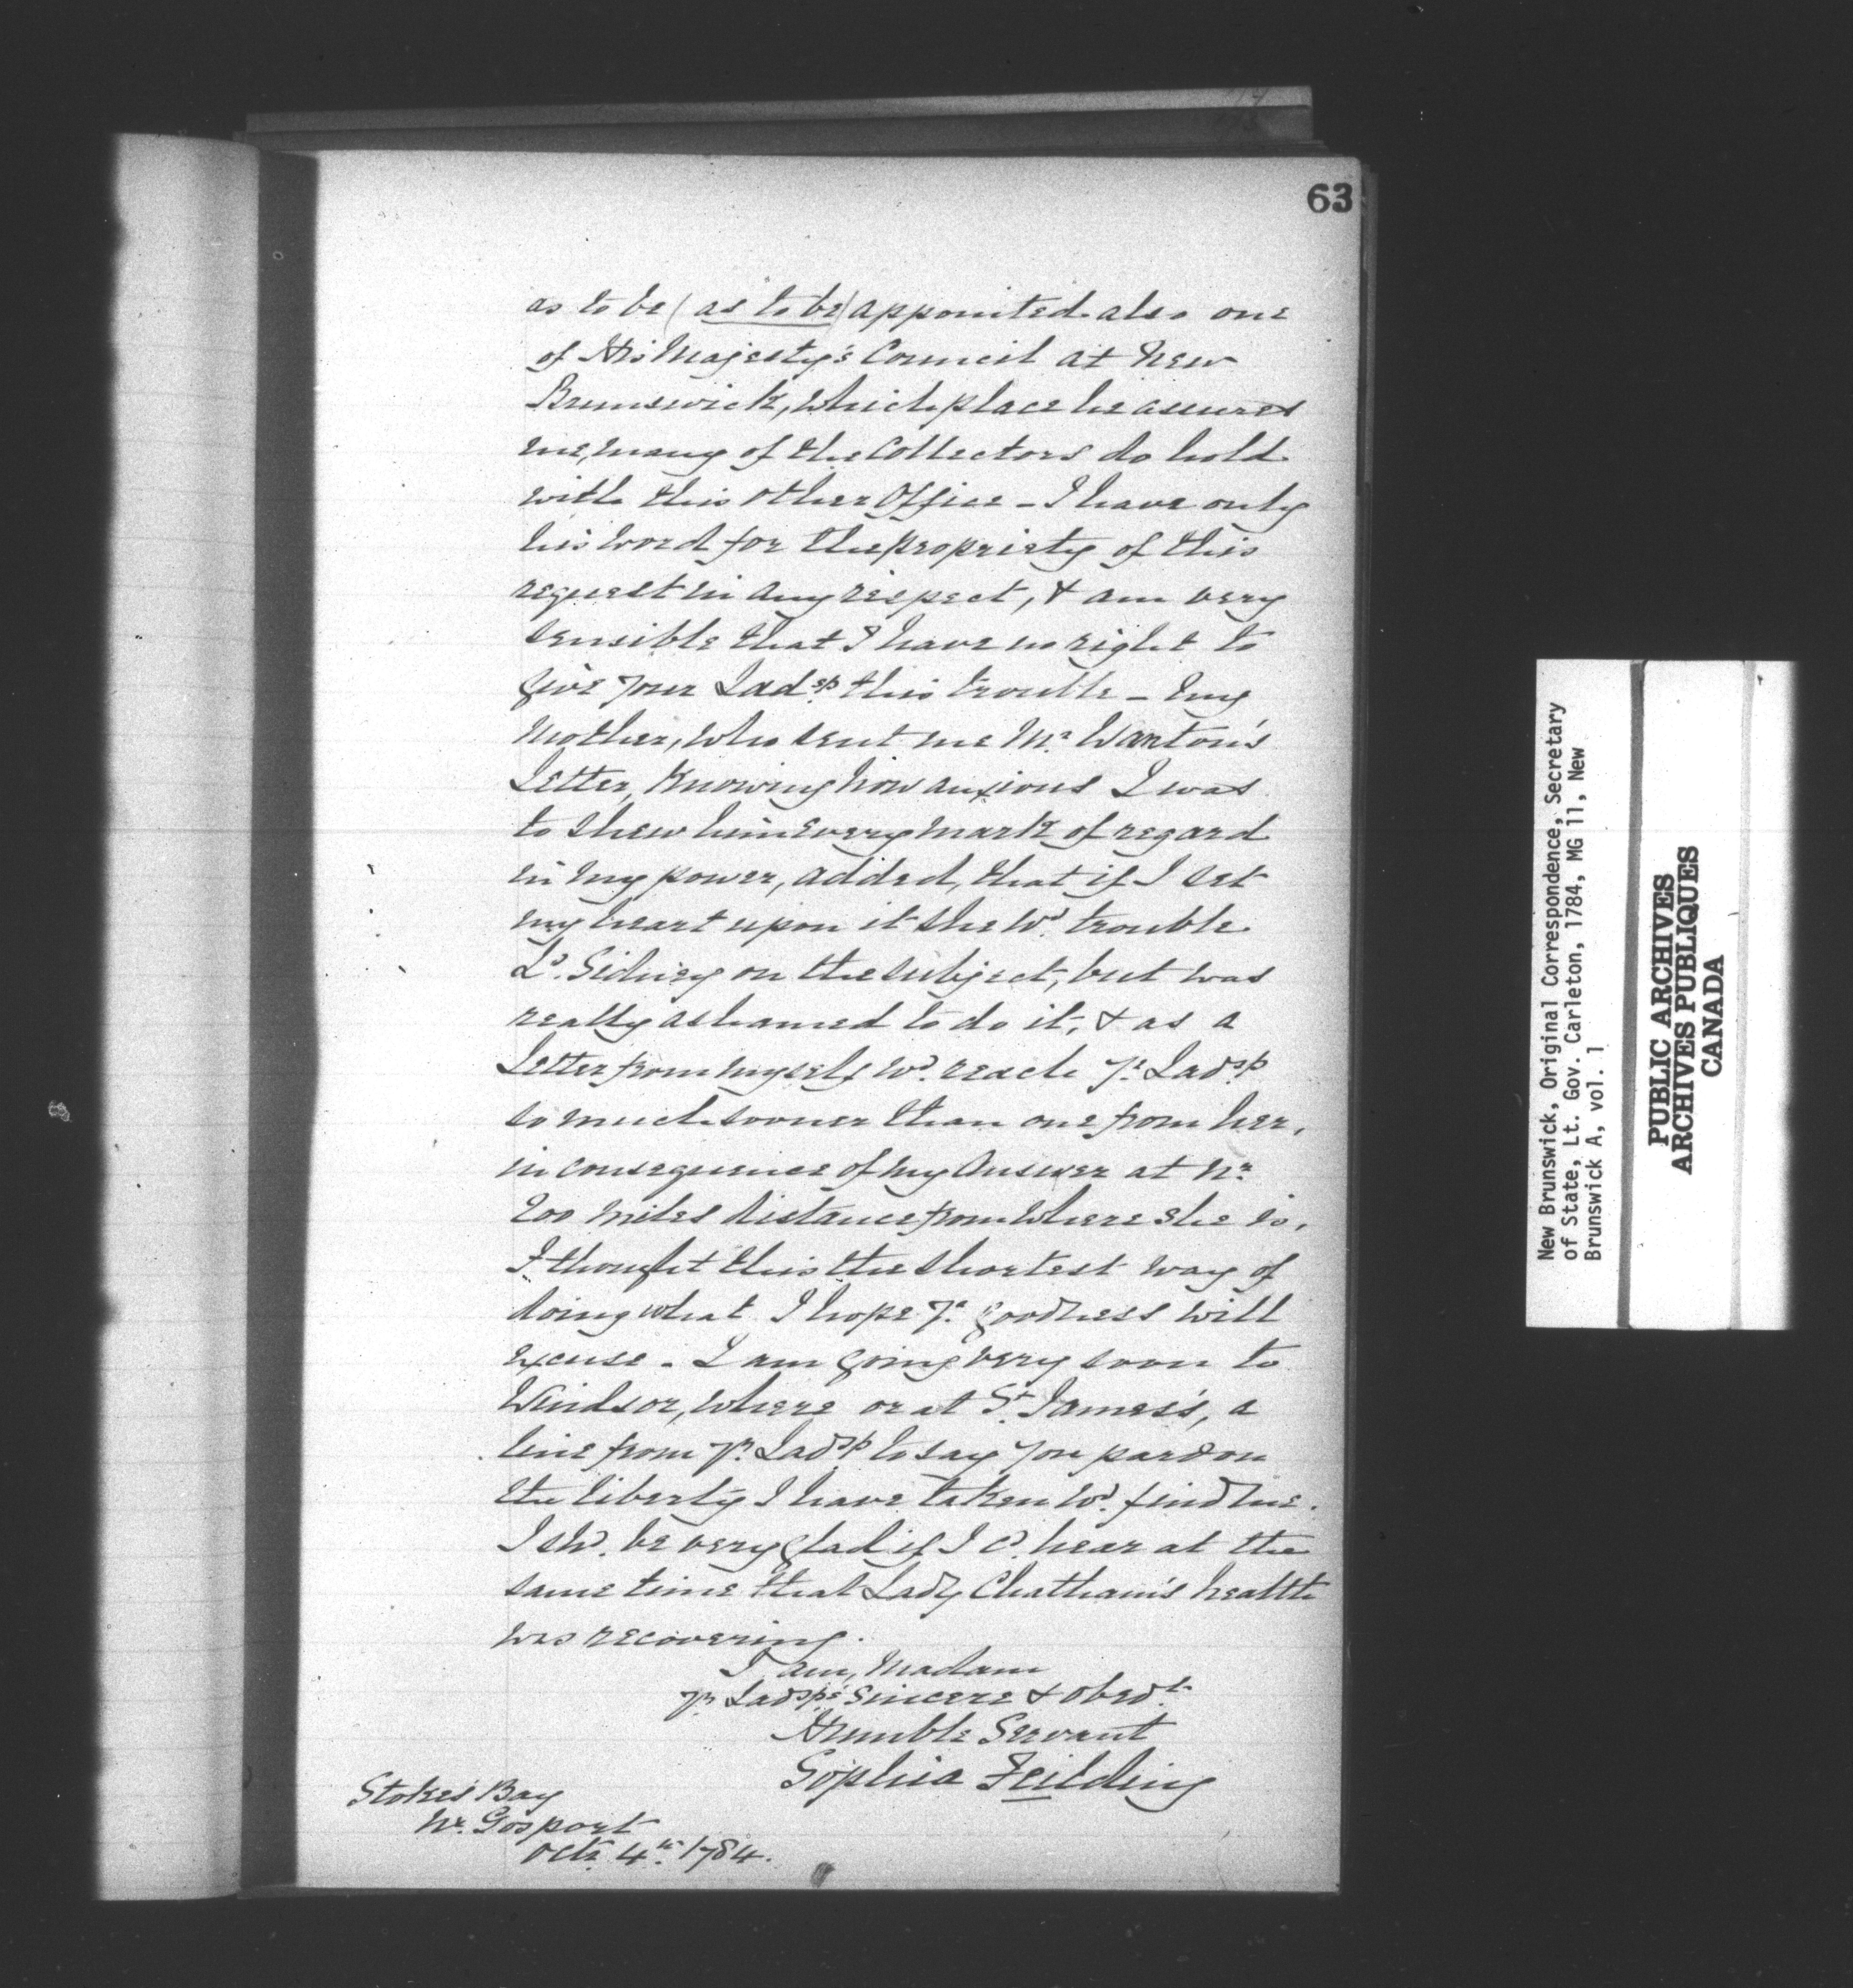 63
as to be (as to be) appointed also one
of His Majesty's Council at New
Brunswick, which place he assures
me, many of the Collectors do hold
with this other Office - I have only
his word for the propriety of this
request in any respect, & am very
sensible that I have no right to
give your Ladsp. this trouble - my
Mother, who sent me Mr. Wanton's
Letter, Knowing how anxious I was
to shew him every mark of regard
in my power, added, that if I set
my heart upon it she wd. trouble
Ld. Sidney on the subject, but was
really ashamed to do it, & as a
Letter from myself wd. reach yr. Ladsp.
so much sooner than one from her,
in consequence of my Answer at nr.
200 miles distance from where she is,
I thought this the shortest way of
doing what I hope yr. goodness will
excuse - I am going very soon to
Windsor, where or at St. James's, a
line from yr. Ladsp. to say you pardon
the liberty I have taken wd. find me.
I shd. be very glad if I cd. hear at the
same time that Lady Chatham's health
was recovering.
I am, Madam
yr. Ladsp's sincere & obedt.
Humble Servant
Sophia Feilding
Stokes Bay
Nr. Gosport
Octr. 4th. 1784.
New Brunswick, Original Correspondence, Secretary
of State, Lt. Gov. Carleton, 1784, MG 11, New
Brunswick A, vol. 1
PUBLIC ARCHIVES
ARCHIVES PUBLIQUES
CANADA